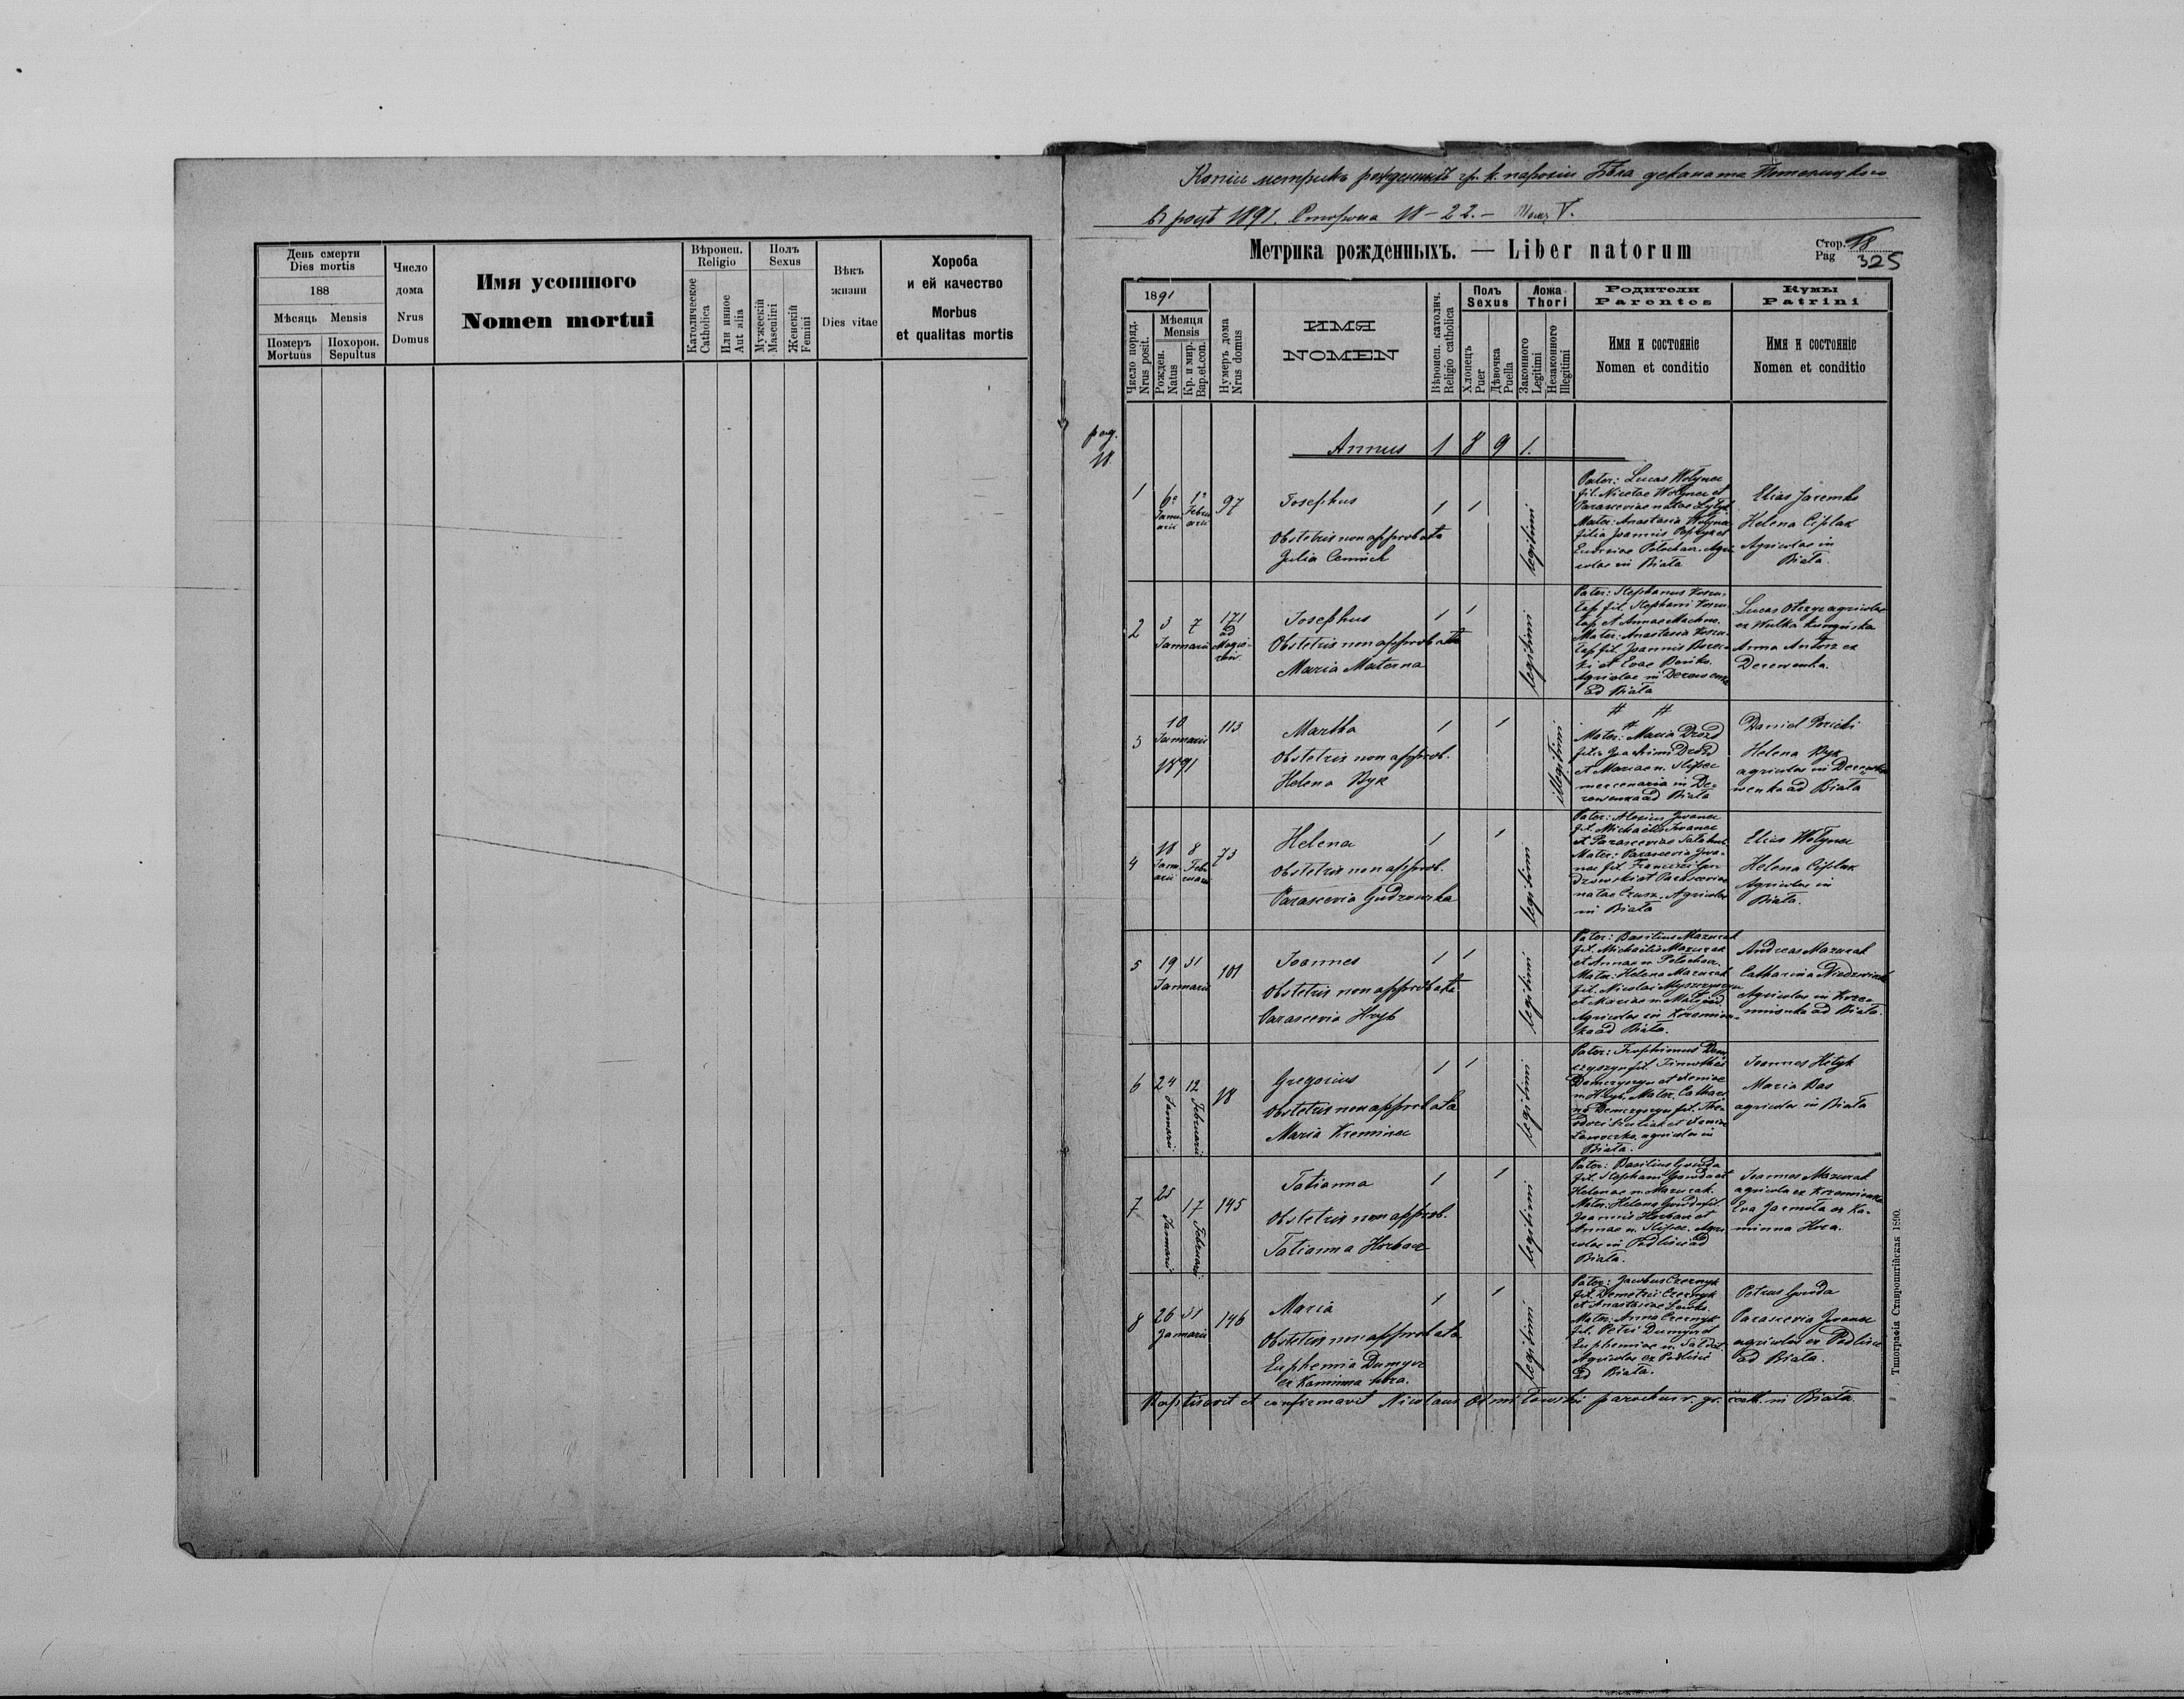 День смерти
Dies mortis
188
Мѣсяць Mensis
Померъ
Mortuus
Похорон.
Sepultus
Число
дома
Nrus
Domus
Имя усопшого
Nomen mortui
Вѣроисп.
Religio
Католическое
Catholica
Или инное
Aut alia
Полъ
Sexus
Мужескій
Masculini
Женскій
Femini
Вѣкъ
жизни
Dies vitae
Хороба
и ей качество
Morbus
et qualitas mortis
Копія метрикъ рожденныхъ гр. к. парохіи Бѣла деканата
въ роцѣ 1891. Сторона 18-22.- Томъ V.
Метрика рожденныхъ. — Liber natorum
Стор. 18
Pag 325
1891
Число поряд.
Nrus posit.
Мѣсяця
Mensis
Рожден.
Natus
Кр. и мир.
Bap.et.con.
Нумеръ дома
Nrus domus
ИМЯ
NOMEN
Вѣроисп. католич.
Religio catholica
Полъ
Sexus
Хлопецъ
Puer
Дѣвочка
Puella
Ложа
Thori
Законного
Legitimi
Незаконного
Illegitimi
Родители
Parentes
Имя и состояніе
Nomen et conditio
Кумы
Patrini
Имя и состояніе
Nomen et conditio
pag.
18
Annus 1 8 9 1.
1
6a
Janu-
arii
1a
Febru
arii
97
Josephus
Obstetrix non approbata
Julia
1 1
legitimi
Pater: Lucas Wołynec
fil. Nicetae Wołynec et
Parasceviae natae
Mater: Anastasia Wołynec
filia Joannis et
Eudociae Agri-
colae in Biała
Elias Jaremko
Helena Ciplak
Agricolae in
Biała.
2
3
7
Januarii
171
ad
Josephus
Obstetrix non approbata
Maria Materna
1 1
legitimi
Pater: Stephanus
fil. Stephani
et Annae
Mater: Anastasia
fil. Joannis
et Evae
Agricolae in Derewenka
ad Biała
Lucas agricola
ex Wulka
Anna ex
Derewenka.
3
10
Januarii
1891
113
Martha
Obstetrix non approb.
Helena Byk
1 1
illegitimi
# #
#
Mater: Maria Drozd
filia Joachimi Drozd
et Mariae n. Slipec
mercenaria in De-
rewenka ad Biała
Daniel
Helena Byk
agricolae in
ad Biała
4
18
Janu-
arii
8
Feb-
ruarii
73
Helena
Obstetrix non approb.
Parascevia
1 1
legitimi
Pater: Alexius Iwanec
fil. Michaelis Iwanec
et Parasceviae
Mater: Parascevia Iwa-
nec fil. Francisci
et Parasceviae
natae Agricolae
in Biała
Elias Wołynec
Helena Ciplak
Agricolae in
Biała.
5
19
31
Januarii
101
Joannes
Obstetrix non approbata
Parascevia Hryb
1 1
legitimi
Pater: Basilius Mazurak
fil. Michaelis Mazurak
et Annae n.
Mater: Helena Mazurak
fil. Nicolai
et Mariae n.
Agricolae in
ad Biała.
Andreas Mazurak
Catharina
Agricolae in
ad Biała.
6
24
Januarii
12
Februarii
18
Gregorius
Obstetrix non approbata
Maria Kreminec
1 1
legitimi
Pater: Trophimus Dem-
czyszyn fil. Timothei
Demczyszyn et Xeniae
n. Hryb. Mater: Cathari-
na Demczyszyn fil. Theo-
dori et Xeniae
agricolae in
Biała.
Joannes
Maria Bas
agricolae in Biała
7
25
Januarii
17
Februarii
145
Tatianna
Obstetrix non approb.
Tatianna Horbacz
1 1
legitimi
Pater: Basilius
fil. Stephani et
Helenae n. Mazurak.
Mater: Helena fil.
Joannis Horbacz et
Annae n. Slipec. Agri-
colae in Podlisie ad
Biała.
Joannes Mazurak
agricola ex
Eva ex Ka-
minna Hora.
8
26
31
Januarii
146
Maria
Obstetrix non approbata
Euphemia Dumycz
ex Kaminna hora.
1 1
legitimi
Pater: Jacobus Czornyk
fil. Demetrii Czornyk
et Anastasiae
Mater: Anna Czornyk
fil. Petri Dumycz et
Euphemiae n.
Agricolae ex Podlisie
ad Biała.
Petrus
Parascevia Iwanec
agricolae ex Podlisie
ad Biała.
Baptisavit et confirmavit Nicolaus parochus r. gr. cath. in Biała.
Типографія Ставропигійская 1890.